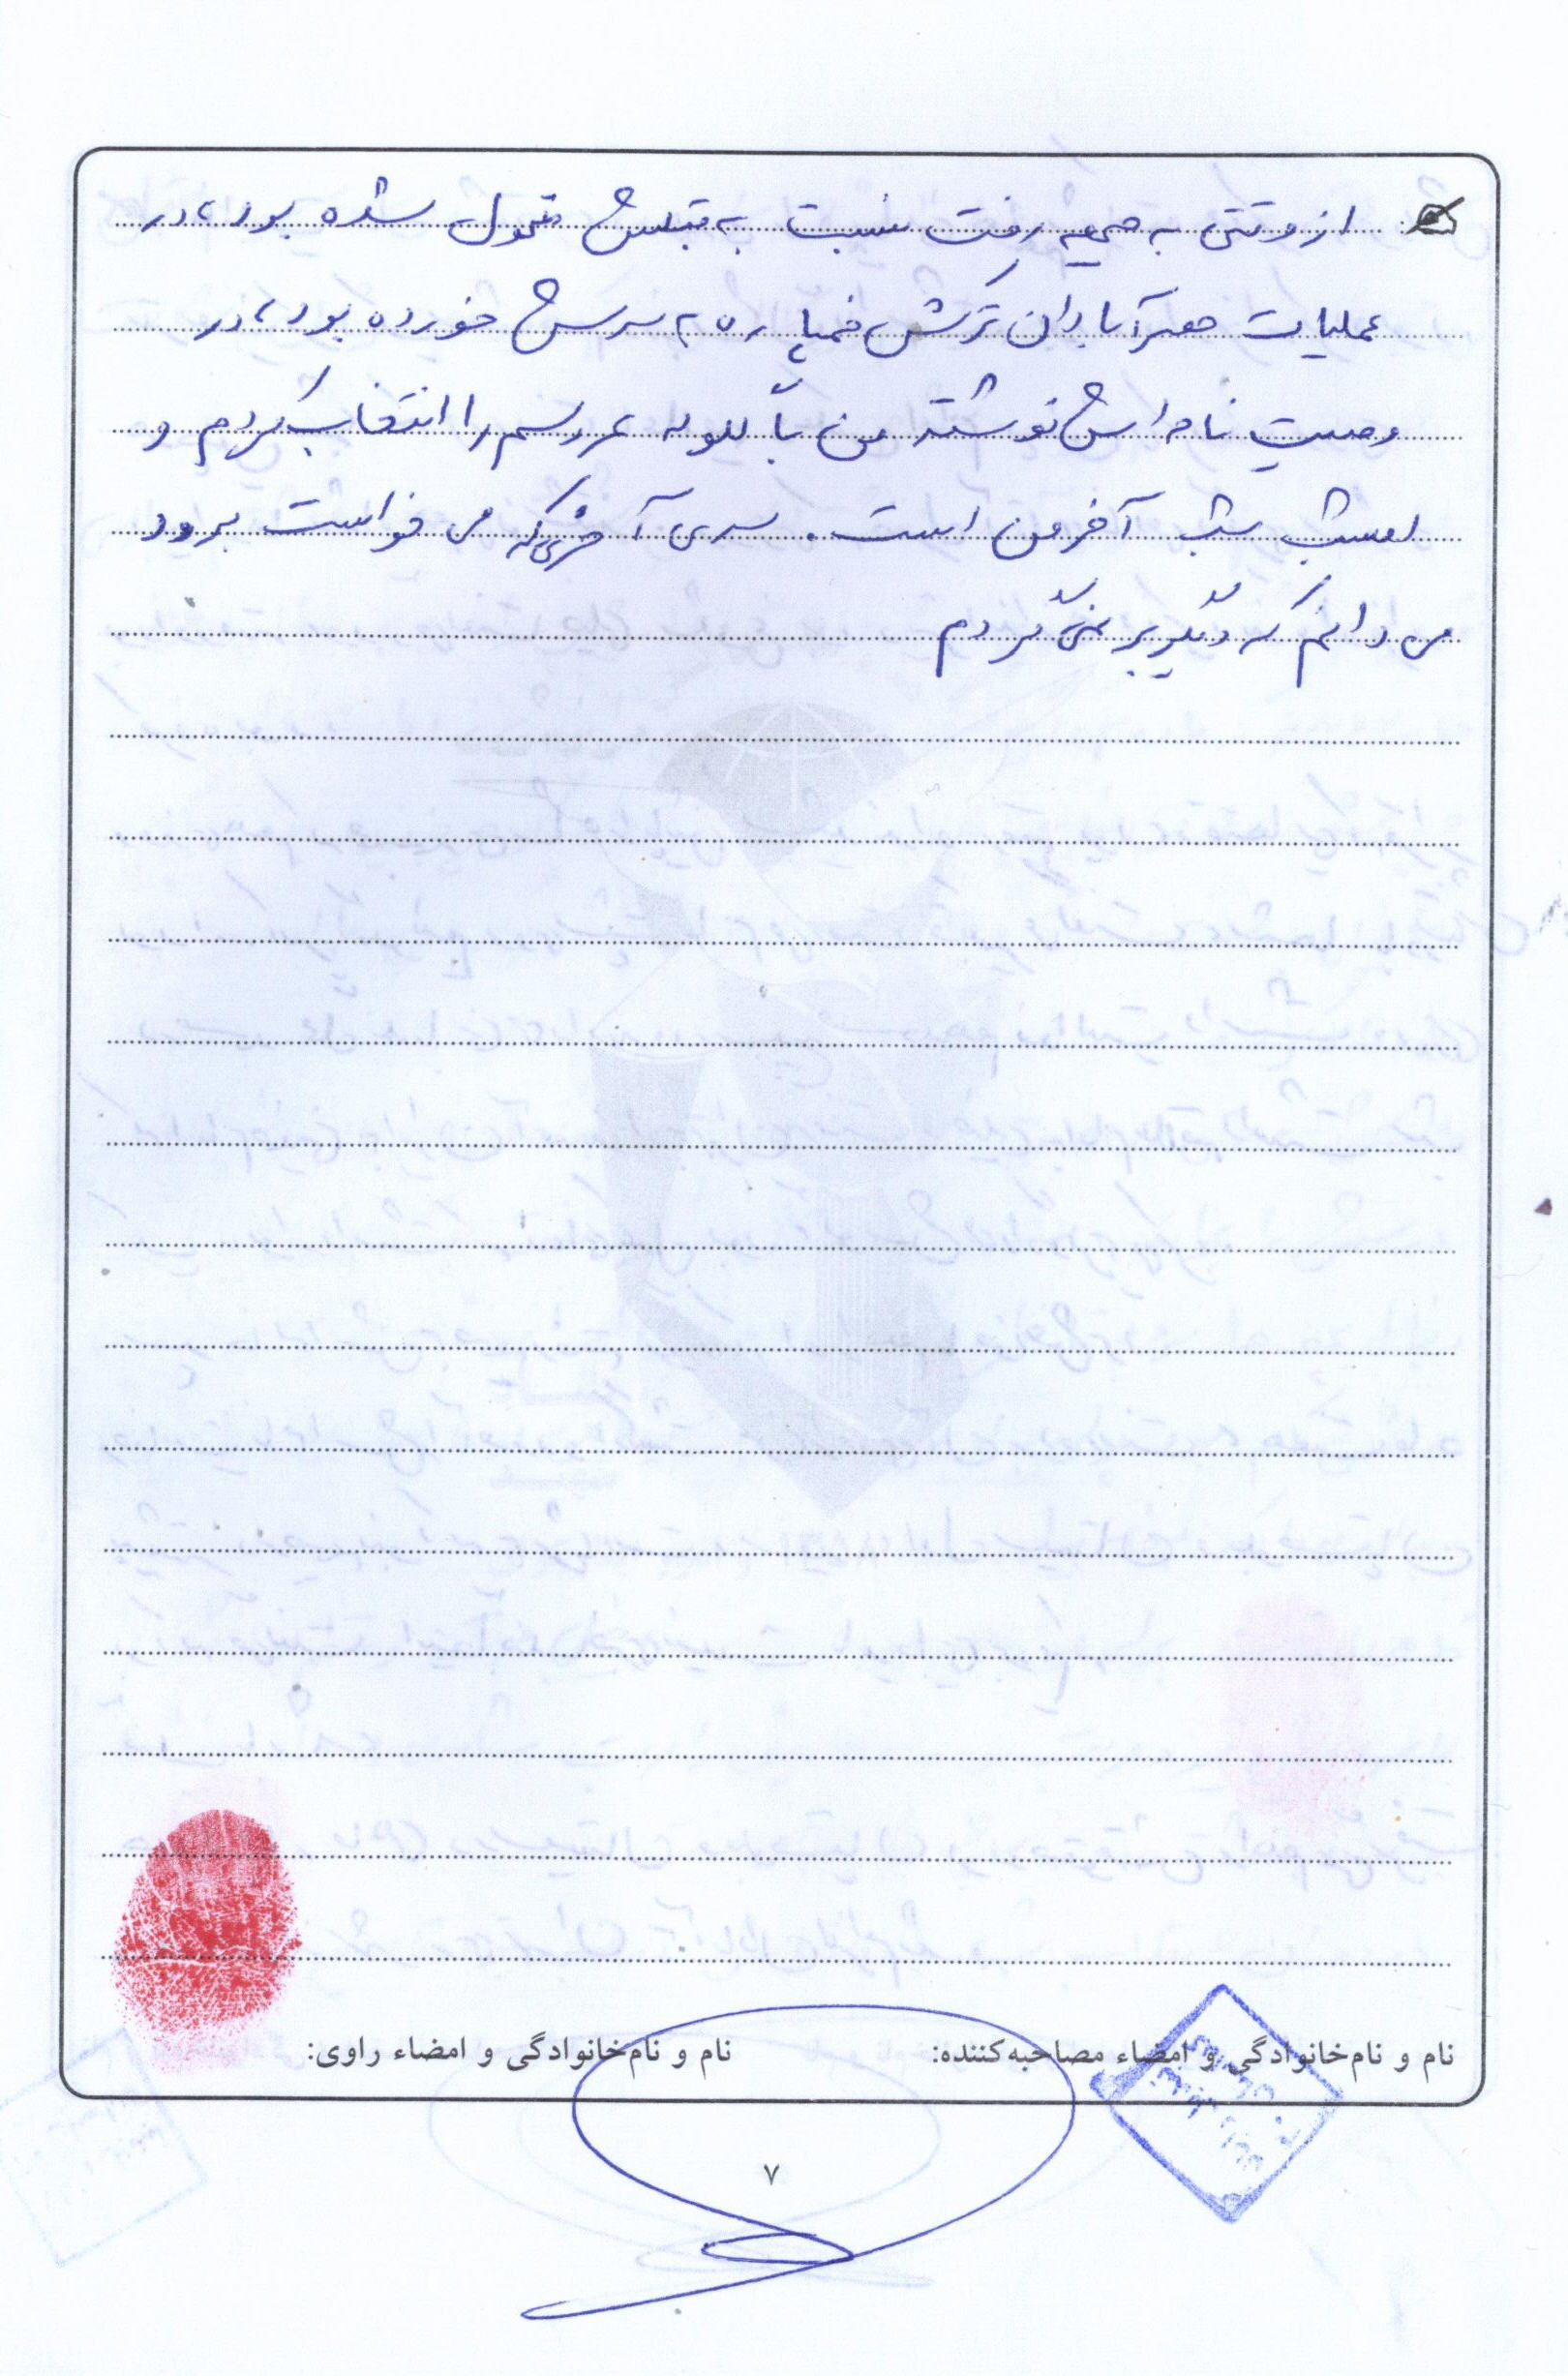 از وقتی به جبهه رفت نسبت به قبلش متحول شده بود، در
عملیات حصر آبادان ترکش خمپاره به سرش خورده بود، در
وصیت نامه اش نوشته من با گلوله عروسم را انتخاب کردم و
امشب شب آخر من است. سری آخری که می خواست برود
می دانم که دیگر بر نمی گردم
نام و نام‌خانوادگی و امضاء مصاحبه‌کننده:
نام و نام‌خانوادگی و امضاء راوی:
۷